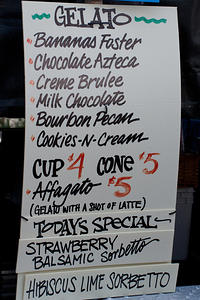 GELATO
Bananas Foster
Chocolate Azteca
Creme Brulee
Milk Chocolate
Bourbon Pecan
Cookies-N-Cream
CUP $4 CONE $5
Affagato - $5
(GELATO WITH A SHOT OF LATTE)
TODAYS SPECIAL
STRAWBERRY
BALSAMIC Sorbetto
HIBISCUS LIME SORBETTO